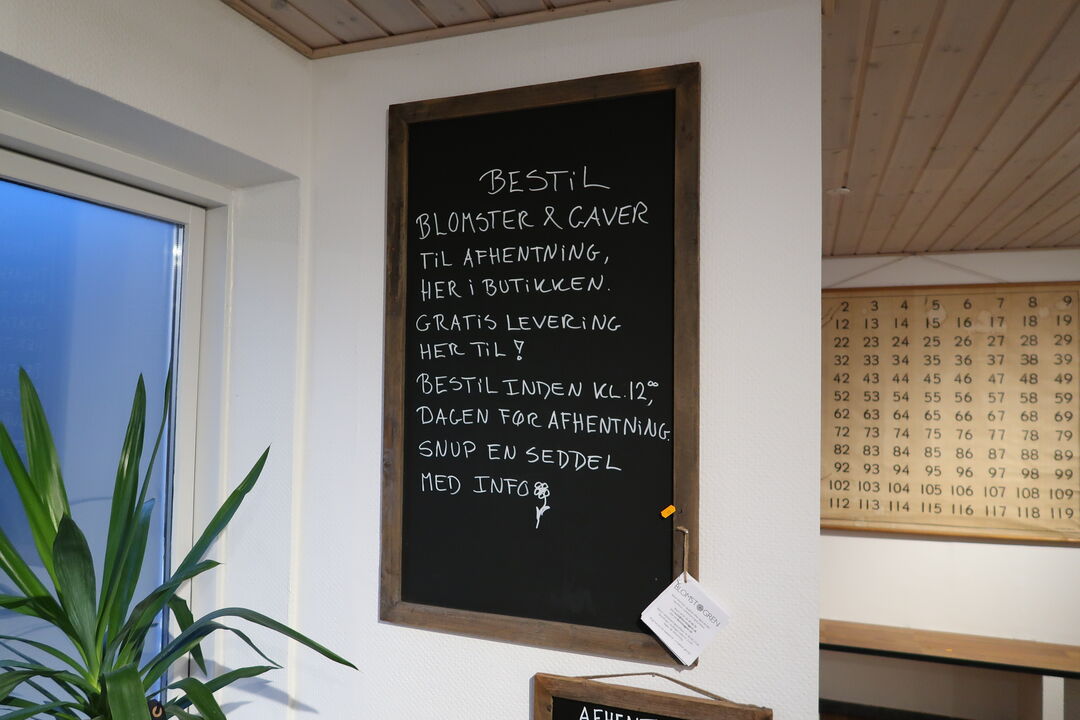 BESTIL
BLOMSTER & GAVER
TIL AFHENTNING,
HER I BUTIKKEN.
GRATIS LEVERING
HER TIL !
BESTIL INDEN KL. 12⁰⁰,
DAGEN FØR AFHENTNING.
SNUP EN SEDDEL
MED INFO
BLOMST GREN
2 3 4 5 6 7 8 9
12 13 14 15 16 17 18 19
22 23 24 25 26 27 28 29
32 33 34 35 36 37 38 39
42 43 44 45 46 47 48 49
52 53 54 55 56 57 58 59
62 63 64 65 66 67 68 69
72 73 74 75 76 77 78 79
82 83 84 85 86 87 88 89
92 93 94 95 96 97 98 99
102 103 104 105 106 107 108 109
112 113 114 115 116 117 118 119